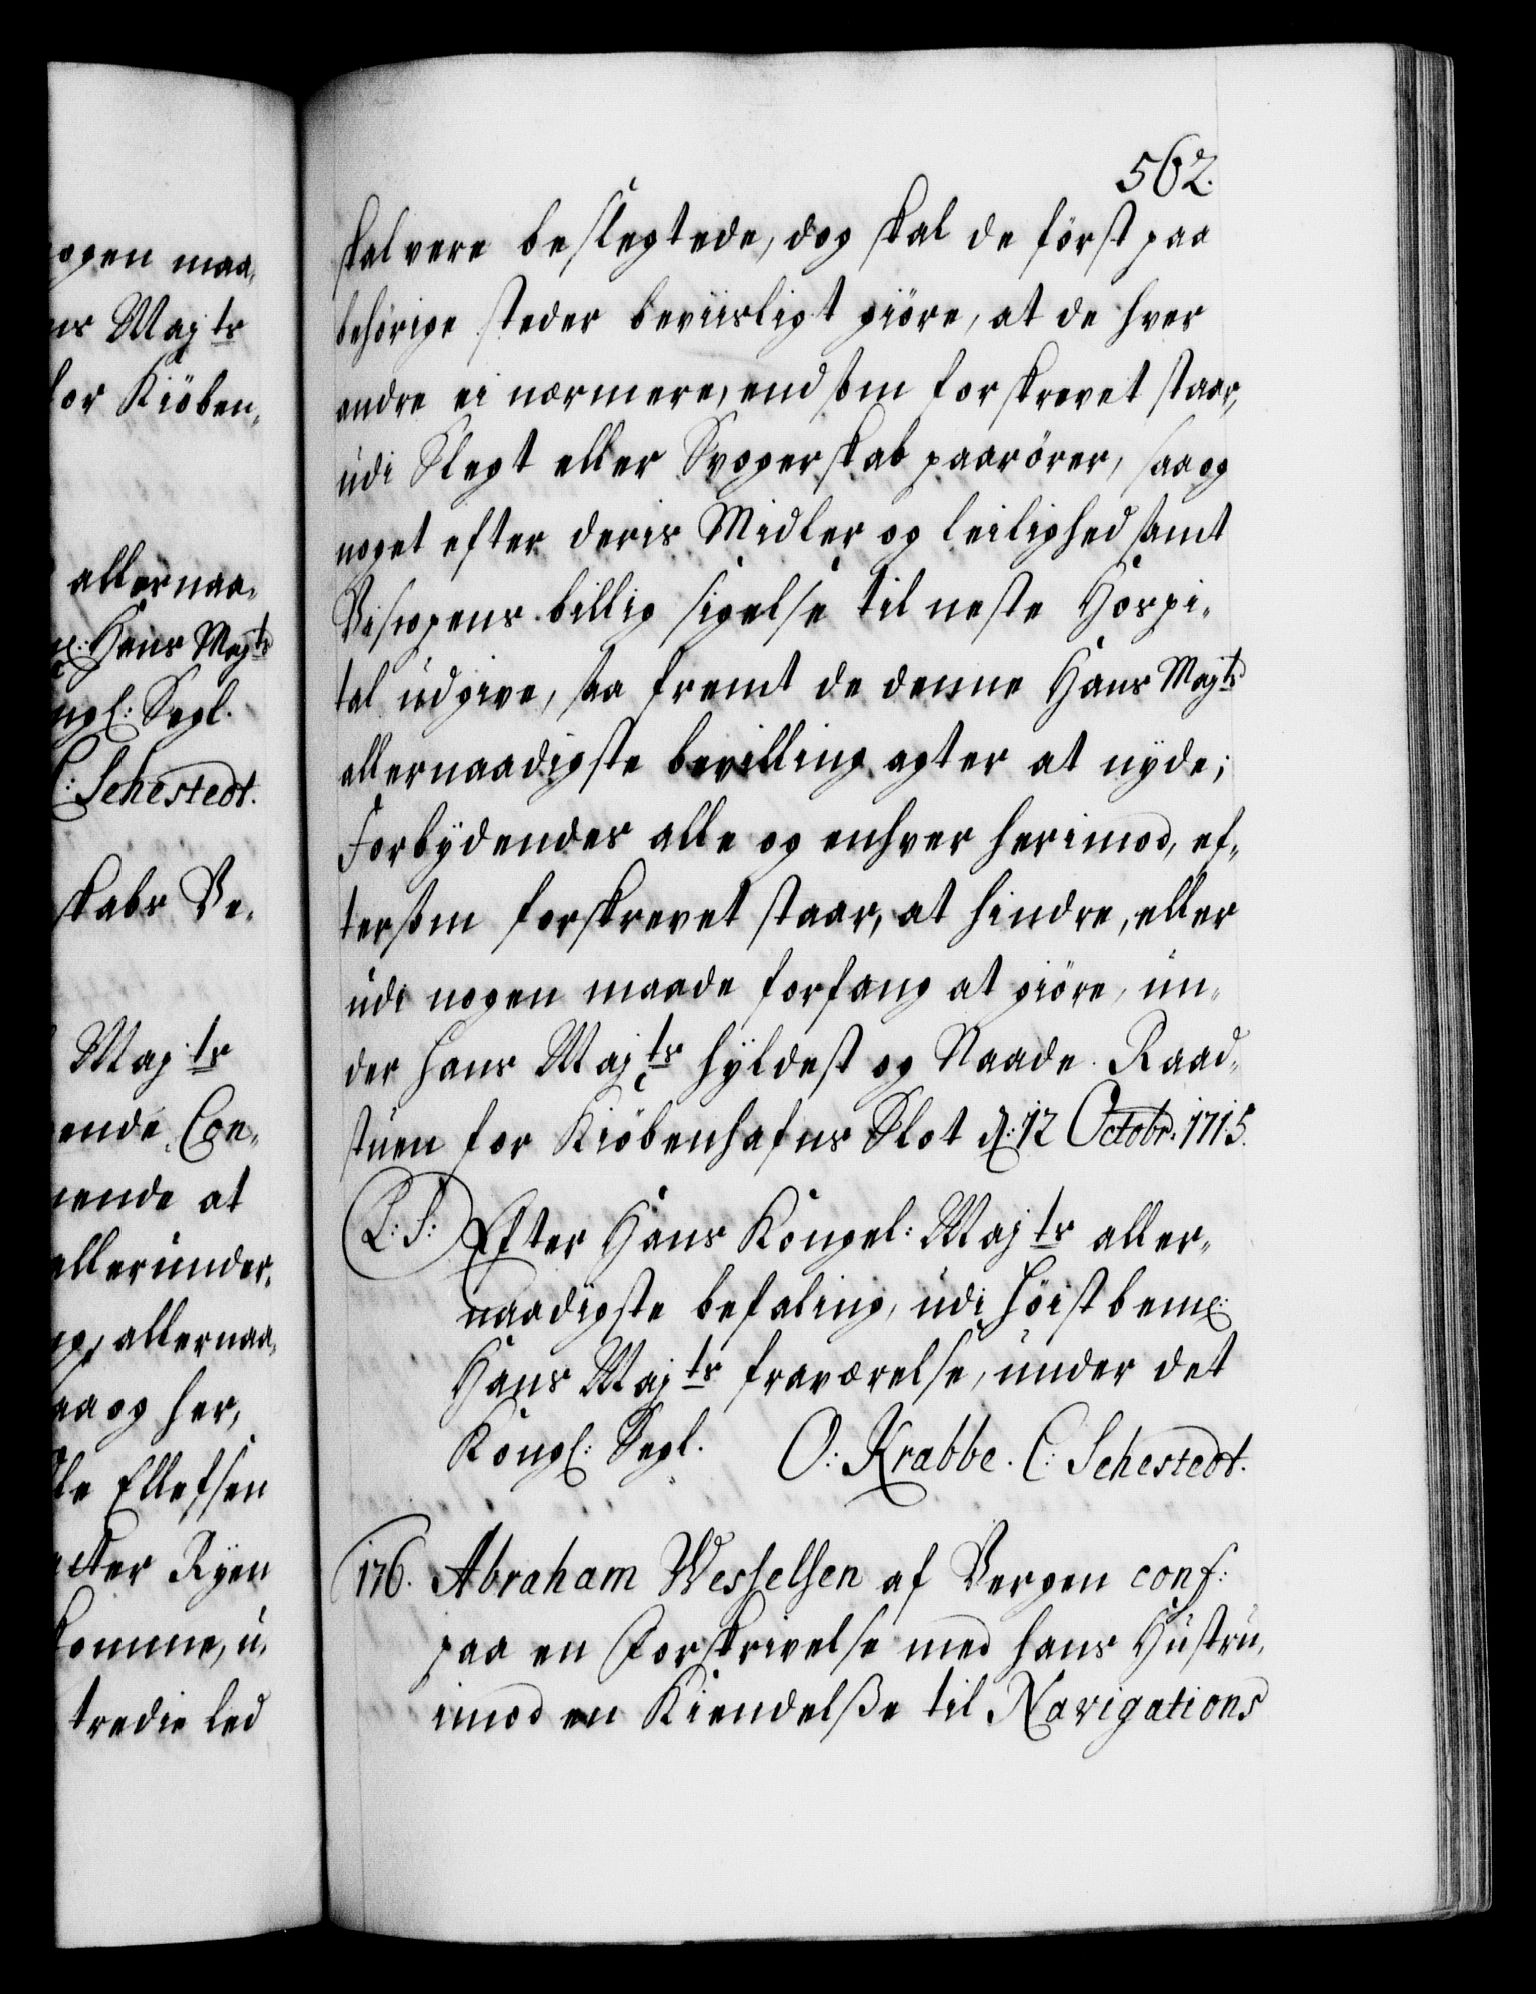 ogen maa-
ns Majts
for Kiöben-
allernaa-
Hans Majts
ngl: Segl.
C: Sehestedt.
skabs Be-
Majts
ende, Con-
nende at
allerunder-
ng, allernaa-
aa og her,
Ole Ellefsen
acter Ryen
komme, u-
tredie led
562.
skal vere beslegtede, dog skal de först paa
behörige steder beviisligt giöre, at de hver
andre ei nærmere, end som forskrevet staar,
udi Slegt eller Svogerskab paarörer, saa og
noget efter deris Midler og leilighed samt
Bispens billig sigelse til neste Hospi-
tal udgive, saa fremt de denne Hans Majts
allernaadigste bevilling agter at nyde;
Forbydendes alle og enhver herimod, ef-
tersom forskrevet staar, at hindre, eller
udi nogen maade forfang at giöre, un-
der hans Majts hyldest og Naade. Raad-
stuen for Kiöbenhafns Slot d: 12 Octobr: 1715.
L: S: Efter Hans Kongel: Majts aller-
naadigste befaling, udi höistbem:
Hans Majts fraværelse, under det
Kongl: Segl. O: Krabbe. C: Sehestedt.
176. Abraham Wesselsen af Bergen conf:
paa en Forskrivelse med hans Hustru,
imod en Kiendelsse til Navigations